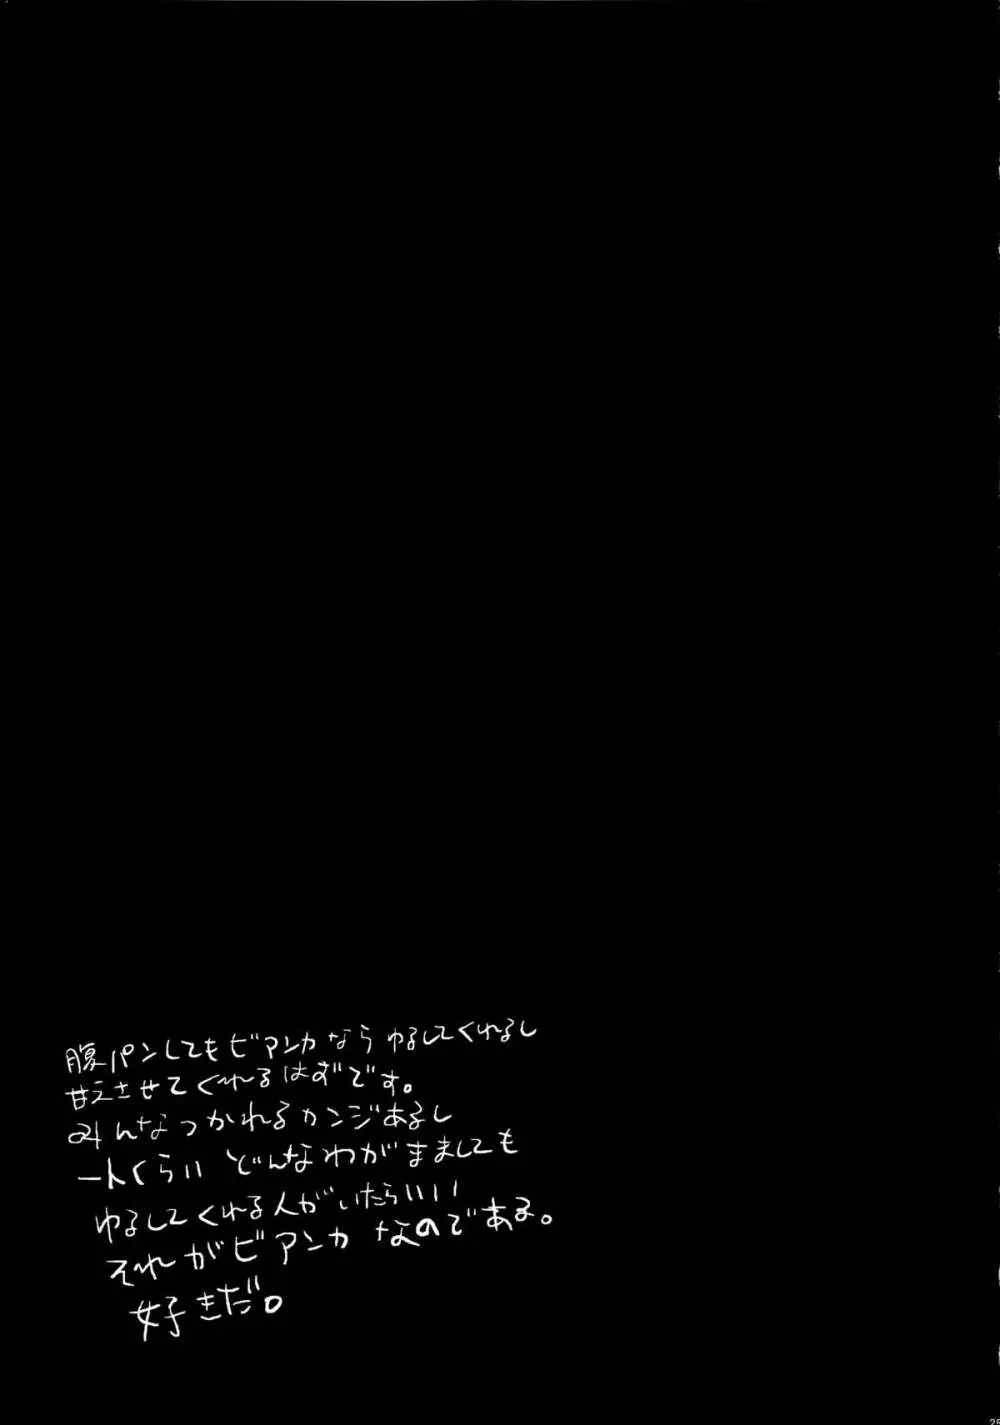 腹パンしてもビアンカなら ゆるしてくれるし
甘えさせてくれるはずです。
みんなつかれるカンジあるし
一人くらい どんなわがまましても
ゆるしてくれる人がいたらいい
それがビアンカ なのである。
好きだ。